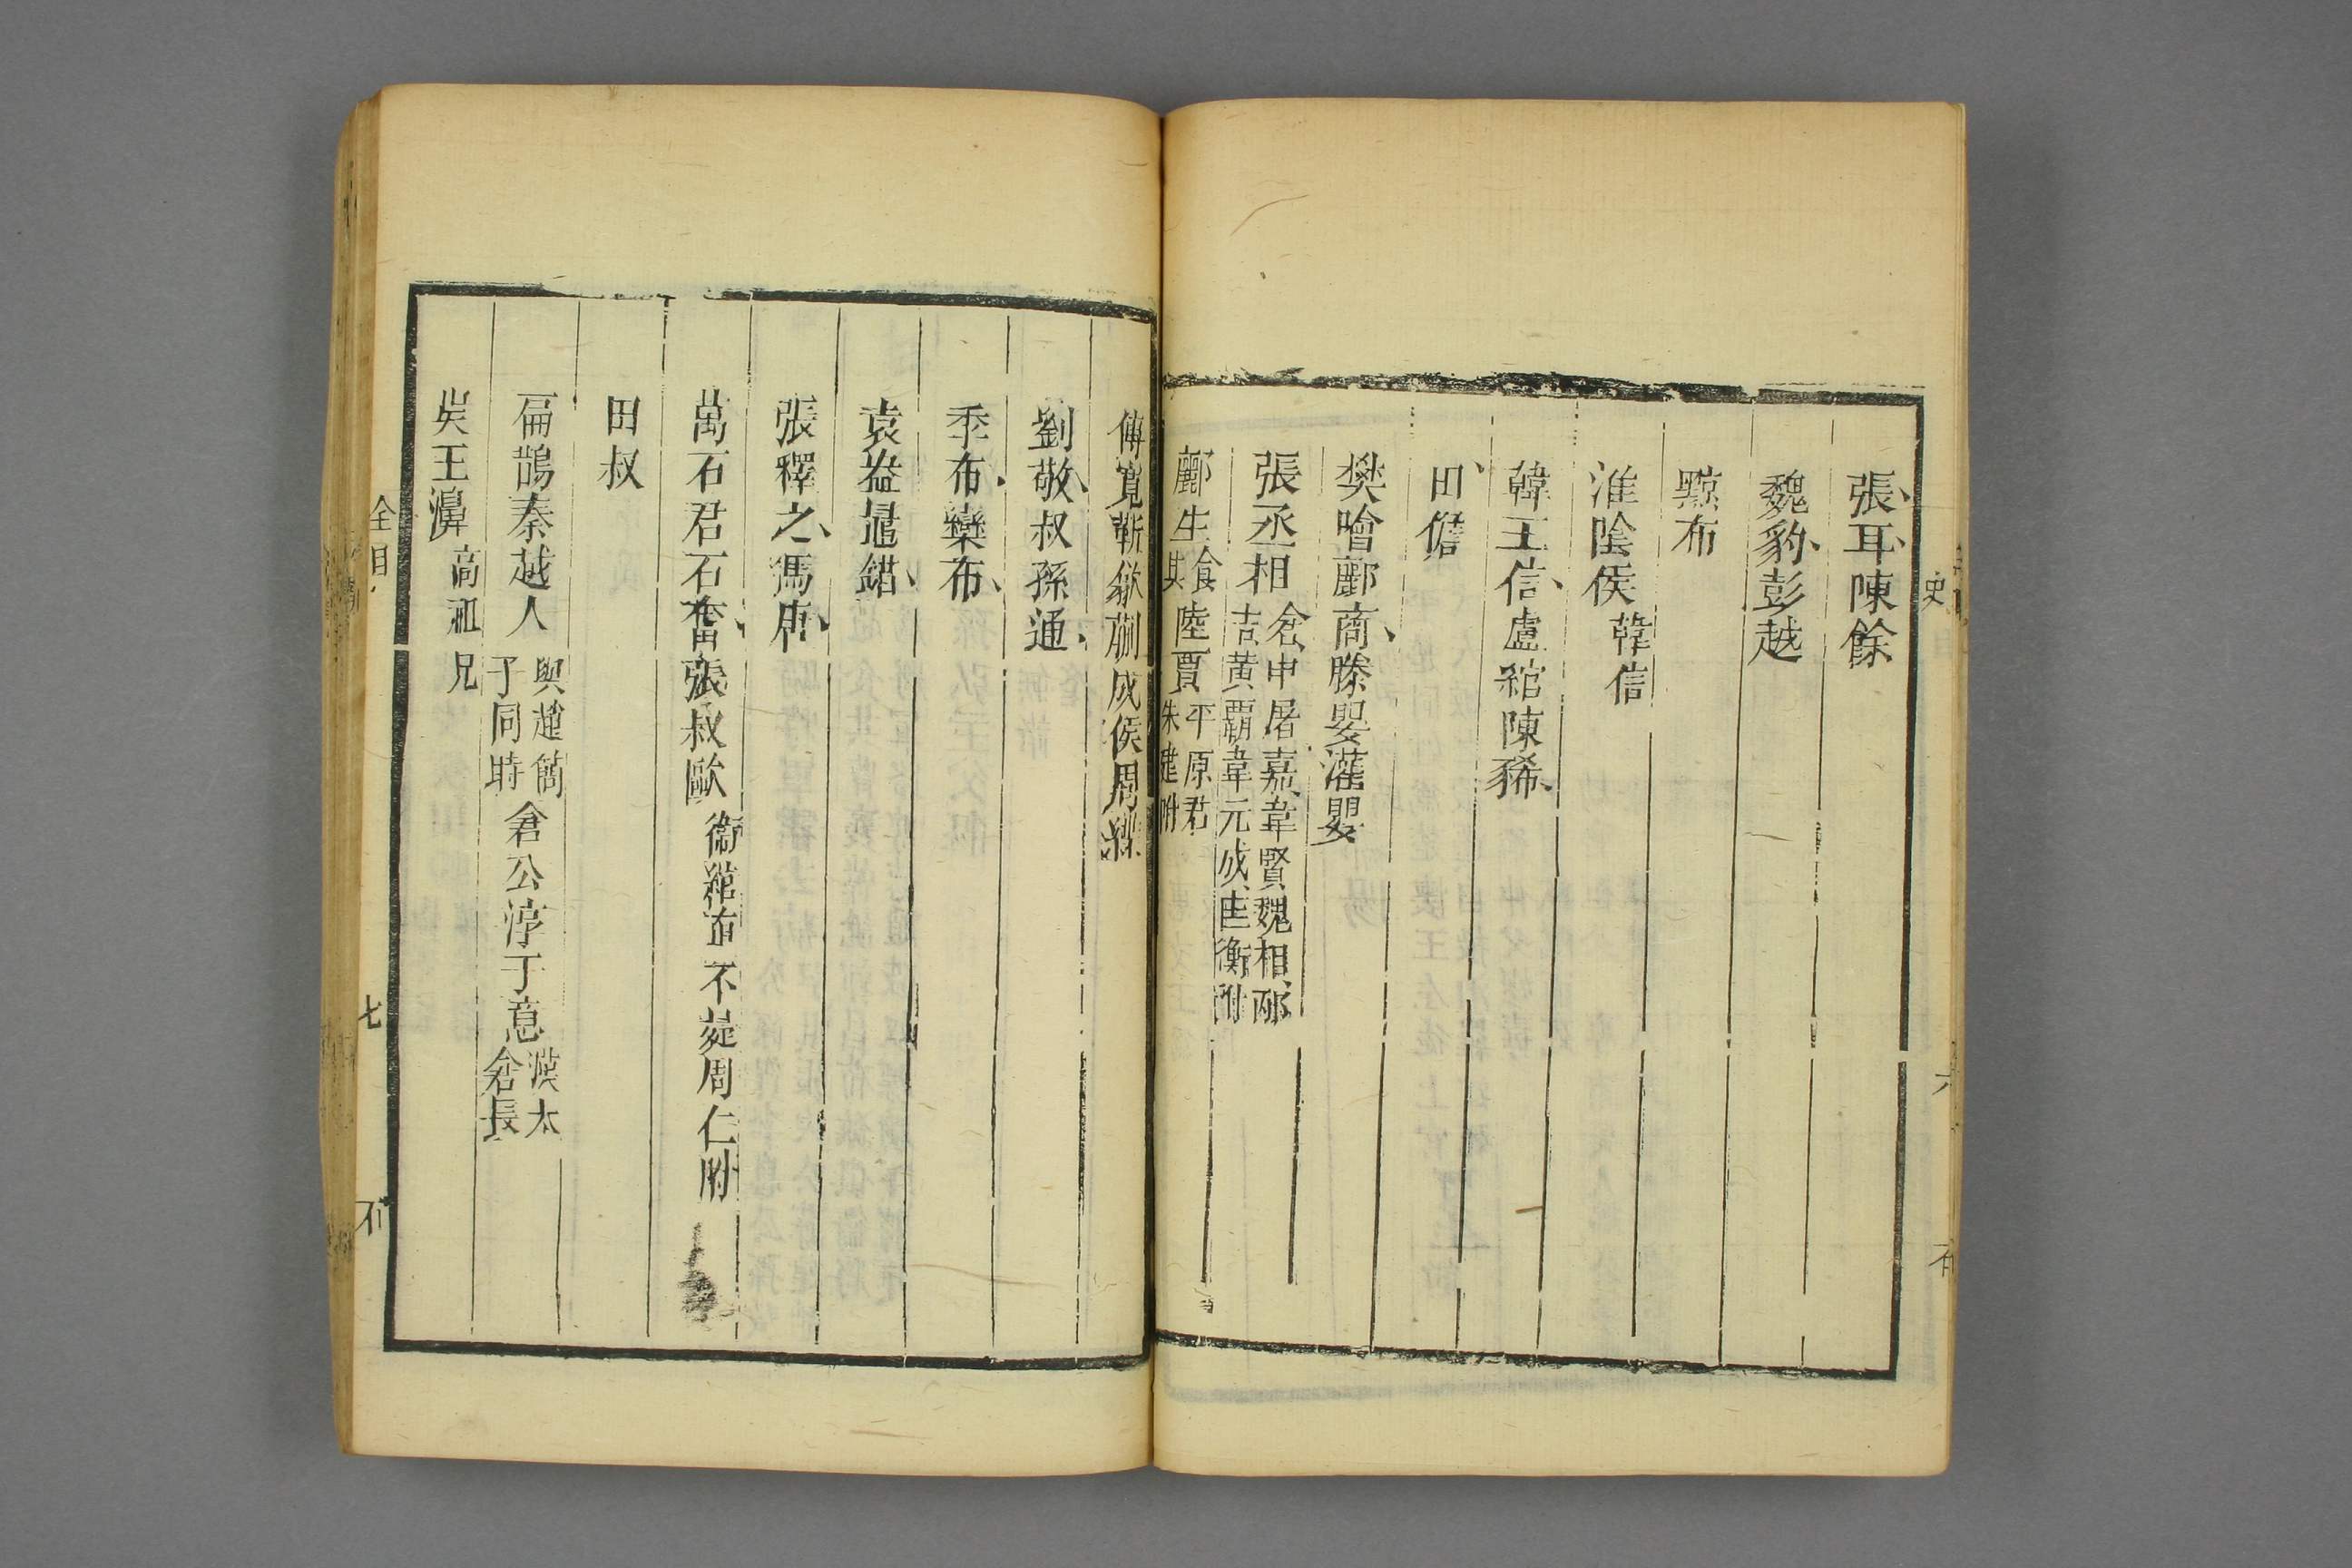 史
六
張耳陳餘
魏豹彭越
黥布
淮陰侯韓信
韓王信盧綰陳豨
田儋
樊噲酈商滕嬰灌嬰
張丞相倉申屠嘉韋賢魏相邴
吉黃霸韋元成匡衡附
酈生食其陸賈平原君
朱建附
傅寬靳歙蒯成侯周緤
劉敬叔孫通
季布欒布
袁盎鼂錯
張釋之馮唐
萬石君石奮張叔歐衛綰直不疑周仁附
田叔
扁鵲秦越人與趙簡
子同時倉公淳于意漢太
倉長
吳王濞高祖兄
全目
七